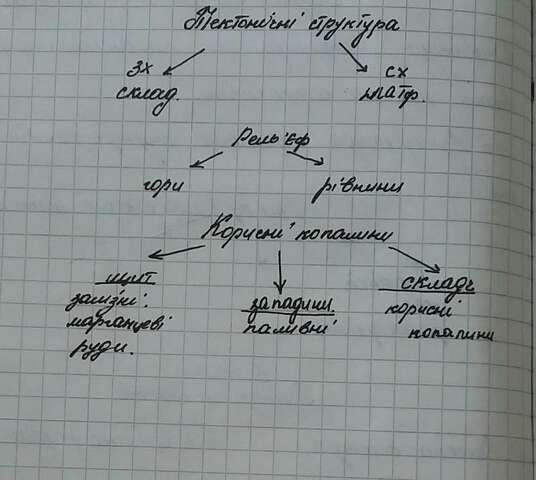 Тектонічні структура
Зх
склад.
Сх
платф.
Рель'єф
гори
рівнини
Корисні копалини
щит
залізні.
марганцеві
руди.
западини.
паливні
складч
корисні
копалини